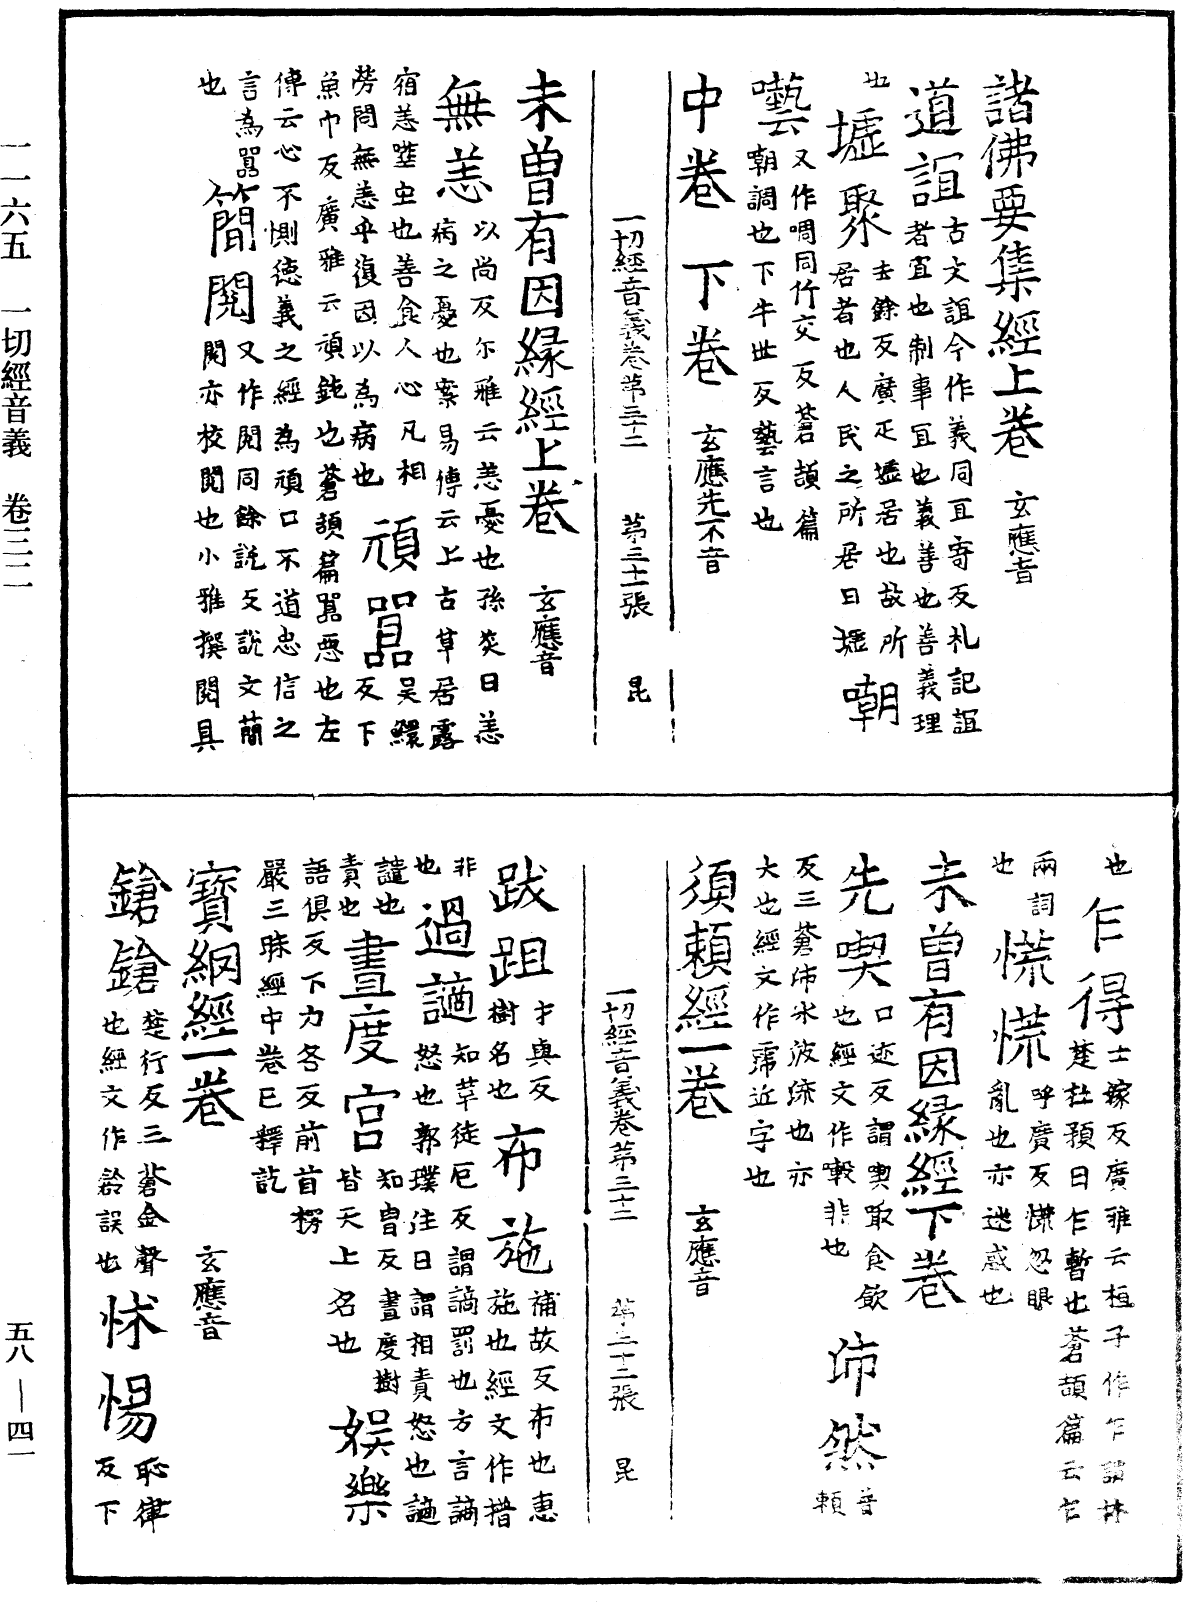 諸佛要集經上卷　玄應音
道誼 古文誼今作義同宜寄反札記誼
者宜也制事宜也義善也善義理
也 墟聚 去餘反廣疋墟居也故所
居者也人民之所居曰墟 嘲
囈 又作啁同竹交反蒼頡篇
嘲調也下牛世反藝言也
中卷　下卷　玄應先不音
一切經音義卷第三十二　第三十一張　昆
未曾有因緣經上卷　玄應音
無恙 以尚反尔雅云恙憂也孫炎曰恙
病之憂也案易傳云上古草居露
宿恙噬虫也善食人心凡相
勞問無恙乎復因以為病也 頑嚚 吴鰥反下
魚巾反廣雅云頑鈍也蒼頡篇嚚惡也左
傳云心不惻德義之經為頑口不道忠信之
言為嚚 簡閱 又作閱同餘說反說文簡
也 閱亦校閱也小雅撰閱具
也 乍得 士嫁反廣雅云桓子作乍謂林
楚杜預曰乍暫也蒼頡篇云乍
兩詞
也 慌慌 呼廣反慌忽眼
亂也亦迷惑也
未曾有因緣經下卷
先喫 口迹反謂喫取食飲
也經文作𡁠非也 沛然 普
賴
反三蒼沛水波流也亦
大也經文作霈近字也
須賴經一卷　玄應音
一切經音義卷第三十二　第三十二張　昆
跋跙 才與反
樹名也 布施 補故反布也惠
施也經文作措
非 過謫 知革徒厄反謂謫罰也方言謫
也 怒也郭璞注曰謂相責怒也謫
譴也
責也 晝度宮 知胄反晝度樹
皆天上名也 娛樂
語俱反下力各反前首楞
嚴三昧經中卷已釋訖
寶網經一卷　玄應音
鎗鎗 楚行反三蒼金聲
也經文作䤥誤也 怵惕 恥律
反下
一一六五　一切經音義　卷三二
五八—四一